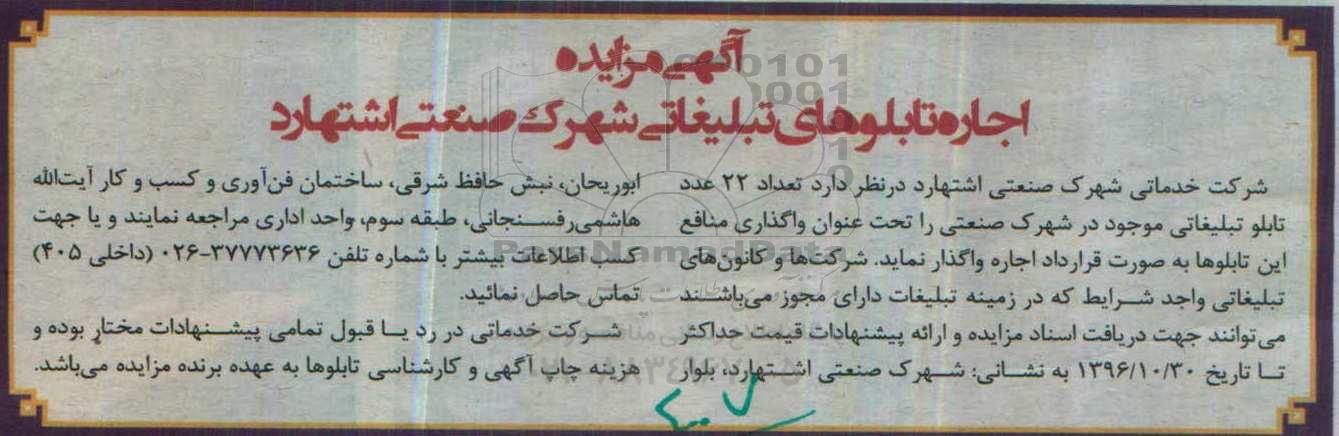 آگهی مزایده
اجاره تابلوهای تبلیغاتی شهرک صنعتی اشتهارد
شرکت خدماتی شهرک صنعتی اشتهارد درنظر دارد تعداد ۲۲ عدد
تابلو تبلیغاتی موجود در شهرک صنعتی را تحت عنوان واگذاری منافع
این تابلوها به صورت قرارداد اجاره واگذار نماید. شرکت‌ها و کانون‌های
تبلیغاتی واجد شرایط که در زمینه تبلیغات دارای مجوز می‌باشند
می‌توانند جهت دریافت اسناد مزایده و ارائه پیشنهادات قیمت حداکثر
تا تاریخ ۱۳۹۶/۱۰/۳۰ به نشانی: شهرک صنعتی اشتهارد، بلوار
ابوریحان، نبش حافظ شرقی، ساختمان فن‌آوری و کسب و کار آیت‌الله
هاشمی‌رفسنجانی، طبقه سوم، واحد اداری مراجعه نمایند و یا جهت
کسب اطلاعات بیشتر با شماره تلفن ۳۷۷۷۳۶۳۶-۰۲۶ (داخلی ۴۰۵)
تماس حاصل نمائید.
شرکت خدماتی در رد یا قبول تمامی پیشنهادات مختار بوده و
هزینه چاپ آگهی و کارشناسی تابلوها به عهده برنده مزایده می‌باشد.
ParsNamadData